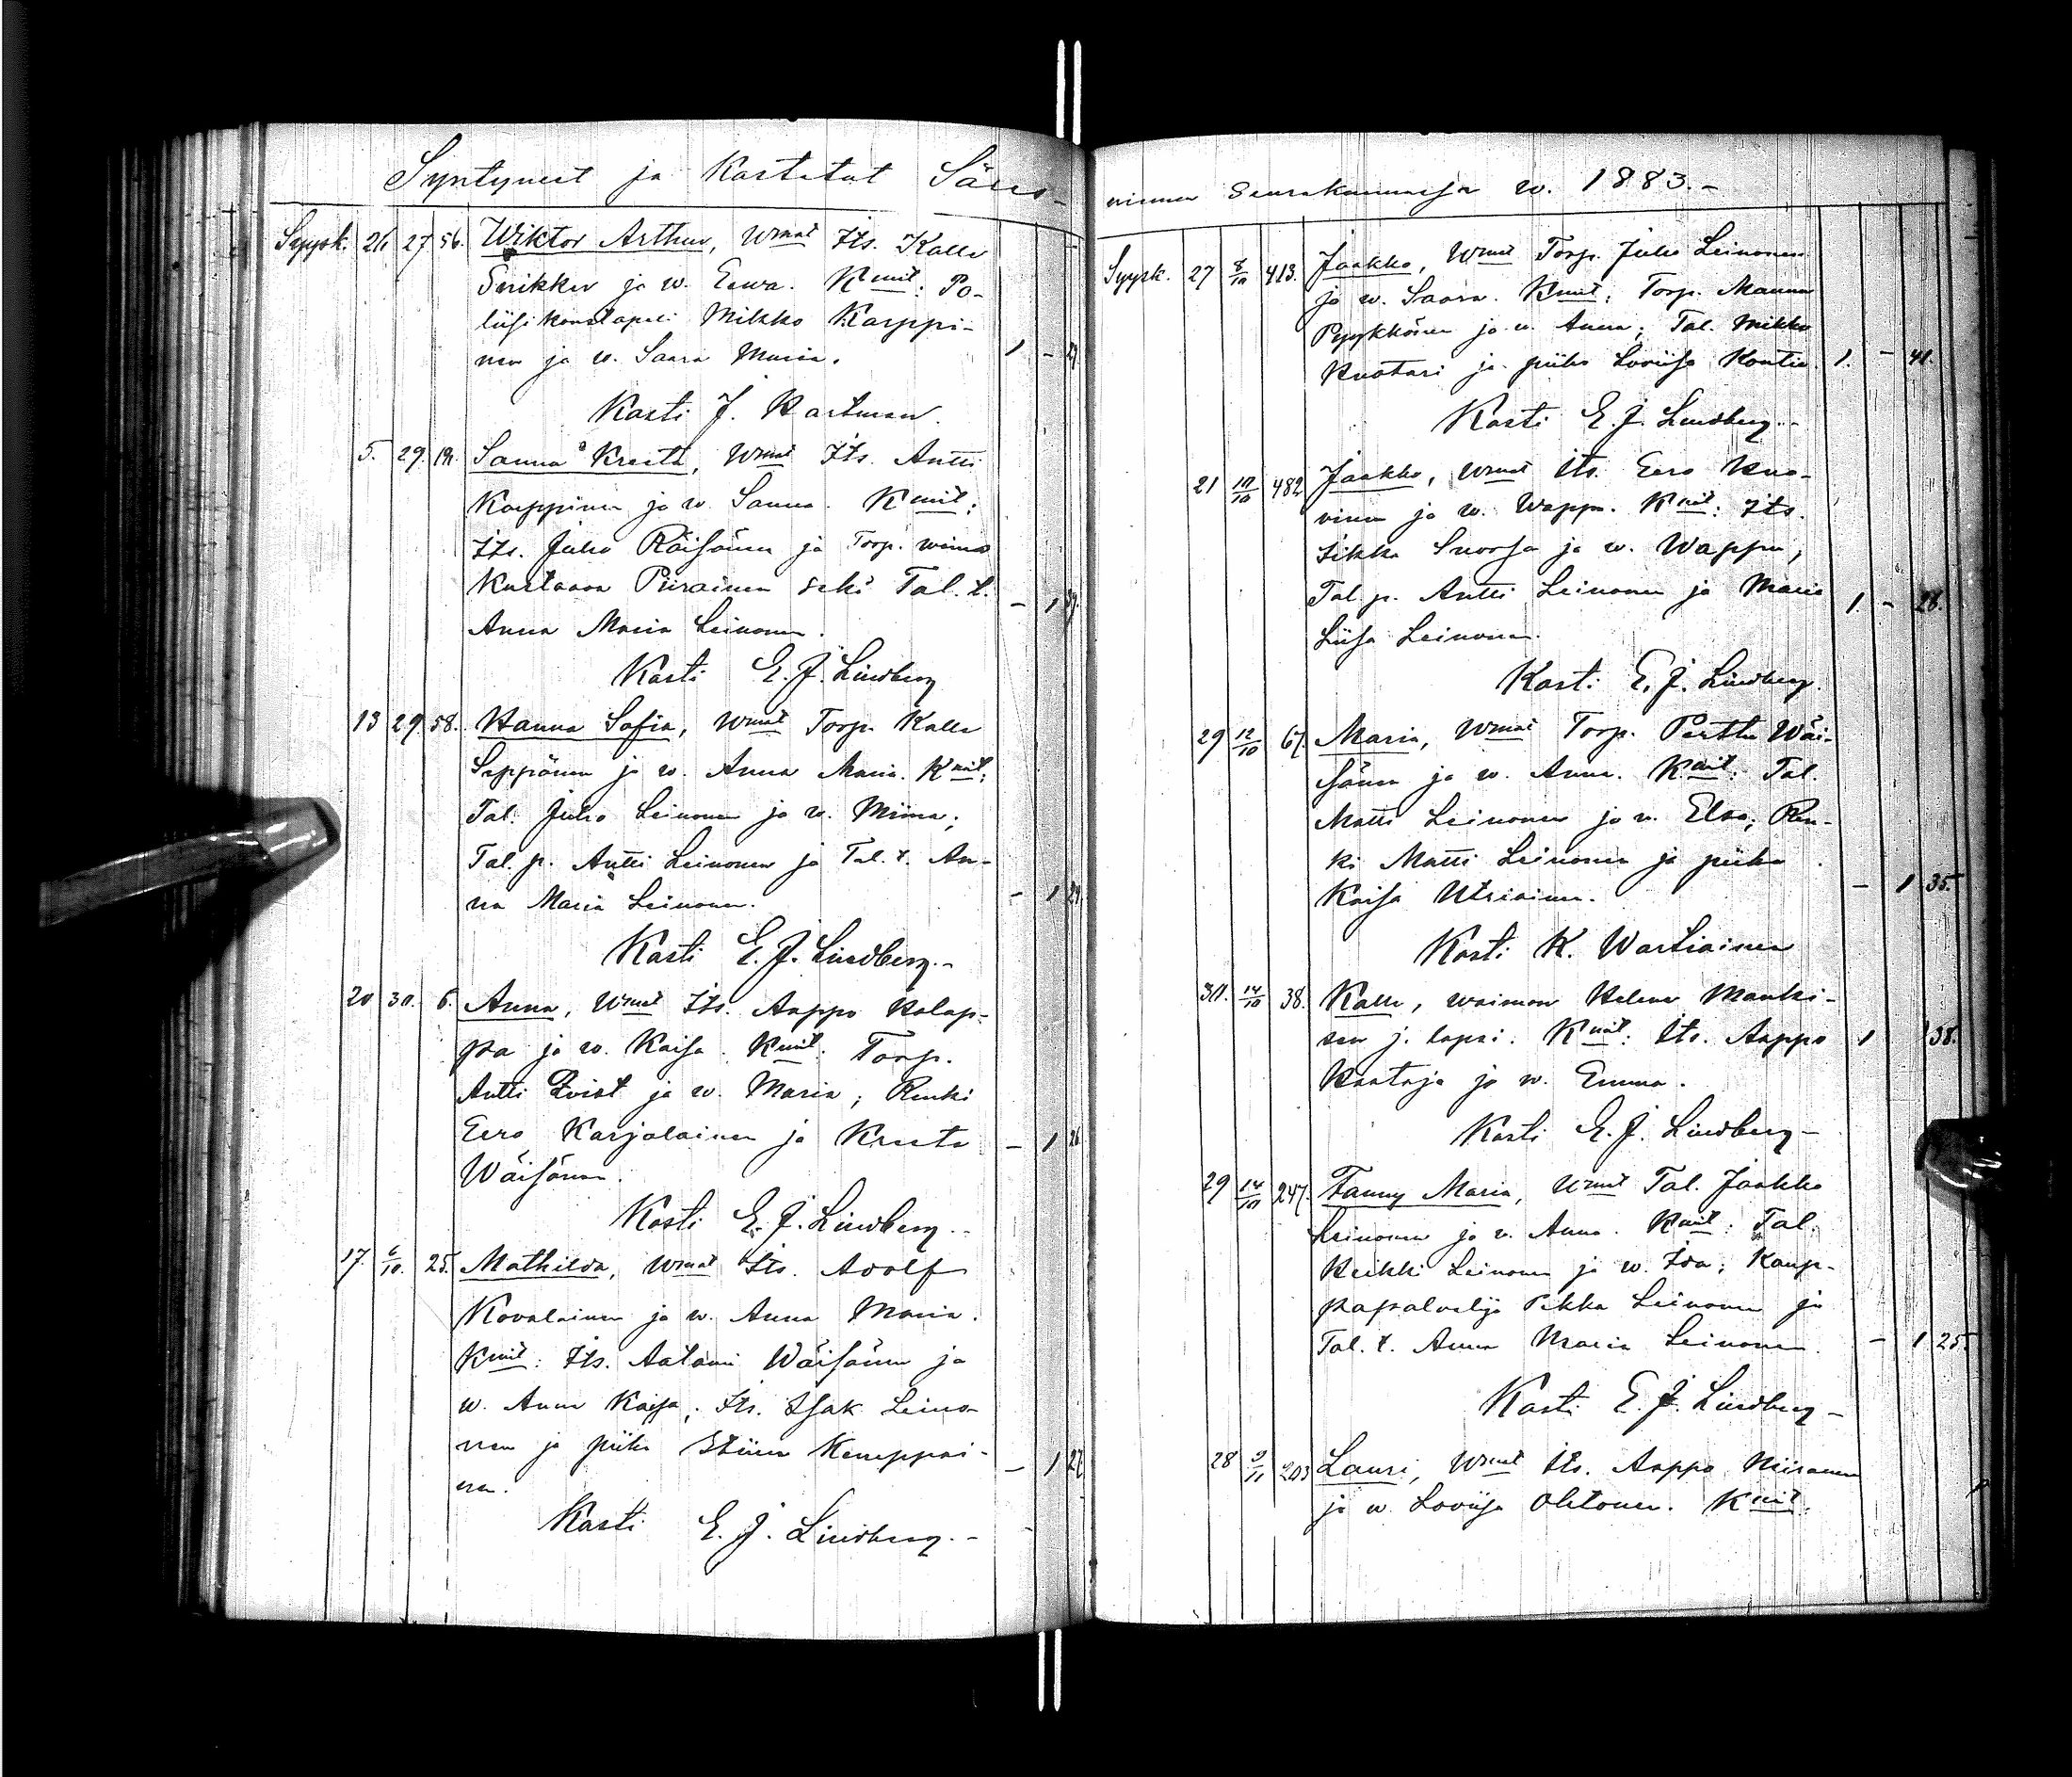 Syntyneet ja Kastetut Säres-
Syysk. 26 27 56. Wiktor Arthur, Wmat Its. Kalle
ja w. Eewa. Kmit: Po-
liisikonstapeli Mikko Karppi-
nen ja w. Saara Maria. 1 - 27
Kasti J. Hartman.
5. 29. 19. Sanna Kreeta, Wmat Its. Antti
Karppinen ja w. Sanna. Kmit:
Its. Juho Räisänen ja Torp. waimo
Kustaava Piirainen sekä Tal. t. - 1
Anna Maria Leinonen.
Kasti E. J. Lindberg
13 29 58. Hanna Sofia, Wmat Torp. Kalle
Seppänen ja w. Anna Maria. Kmit:
Tal. Juho Leinonen ja w. Miina;
Tal. p. Antti Leinonen ja Tal. t. An-
na Maria Leinonen. - 1 29.
Kasti E. J. Lindberg.-
20 30. 6. Anna, Wmat Its. Aappo Holap-
pa ja w. Kaisa. Kmit: Torp.
Antti Qvist ja w. Maria; Renki
Eero Karjalainen ja Kreeta - 1 26
Wäisänen.
Kasti E. J. Lindberg.-
17. 6/10. 25. Mathilda, Wmat Its. Adolf
Kovalainen ja w. Anna Maria.
Kmit: Its. Aatami Wäisänen ja
w. Anna Kaisa; Its. Isak Leino-
nen ja piika Stiina Kemppai- - 1 27
nen.
Kasti E. J. Lindberg.-
niemen Seurakunnassa w. 1883.-
Syysk. 27 8/10 413. Jaakko, Wmat Torp. Juho Leinonen
ja w. Saara. Kmit: Torp. Mauno
Pyykkönen ja w. Anna; Tal. Mikko
Huotari ja piika Loviisa Kontio. 1. - 41.
Kasti E. J. Lindberg.-
21 10/10 482 Jaakko, Wmat Its. Eero Huo-
vinen ja w. Wappu. Kmit: Its.
Iikka Snoosa ja w. Wappu;
Tal. p. Antti Leinonen ja Maria 1. - 28.
Liisa Leinonen.
Kasti E. J. Lindberg.
29 12/10 67. Maria, Wmat Torp. Perttu Wäi-
sänen ja w. Anna. Kmit: Tal.
Matti Leinonen ja w. Elsa; Ren-
ki Matti Leinonen ja piika
Kaisa Utriainen. - 1 35.
Kasti K. Wartiainen
30. 14/10 38. Kalle, waimon Helena Manni-
sen j. lapsi. Kmit: Its. Aappo 1 38.
Kaataja ja w. Emma.
Kasti E. J. Lindberg-
29 14/10 247. Fanny Maria, Wmat Tal. Jaakko
Leinonen ja w. Anna. Kmit: Tal.
Heikki Leinonen ja w. Ida; Kaup-
papalvelija Pekka Leinonen ja
Tal. t. Anna Maria Leinonen. - 1 25.
Kasti E. J. Lindberg-
28 9/11 203 Lauri, Wmat Its. Aappo Niiranen
ja w. Loviisa Ohtonen. Kmit: